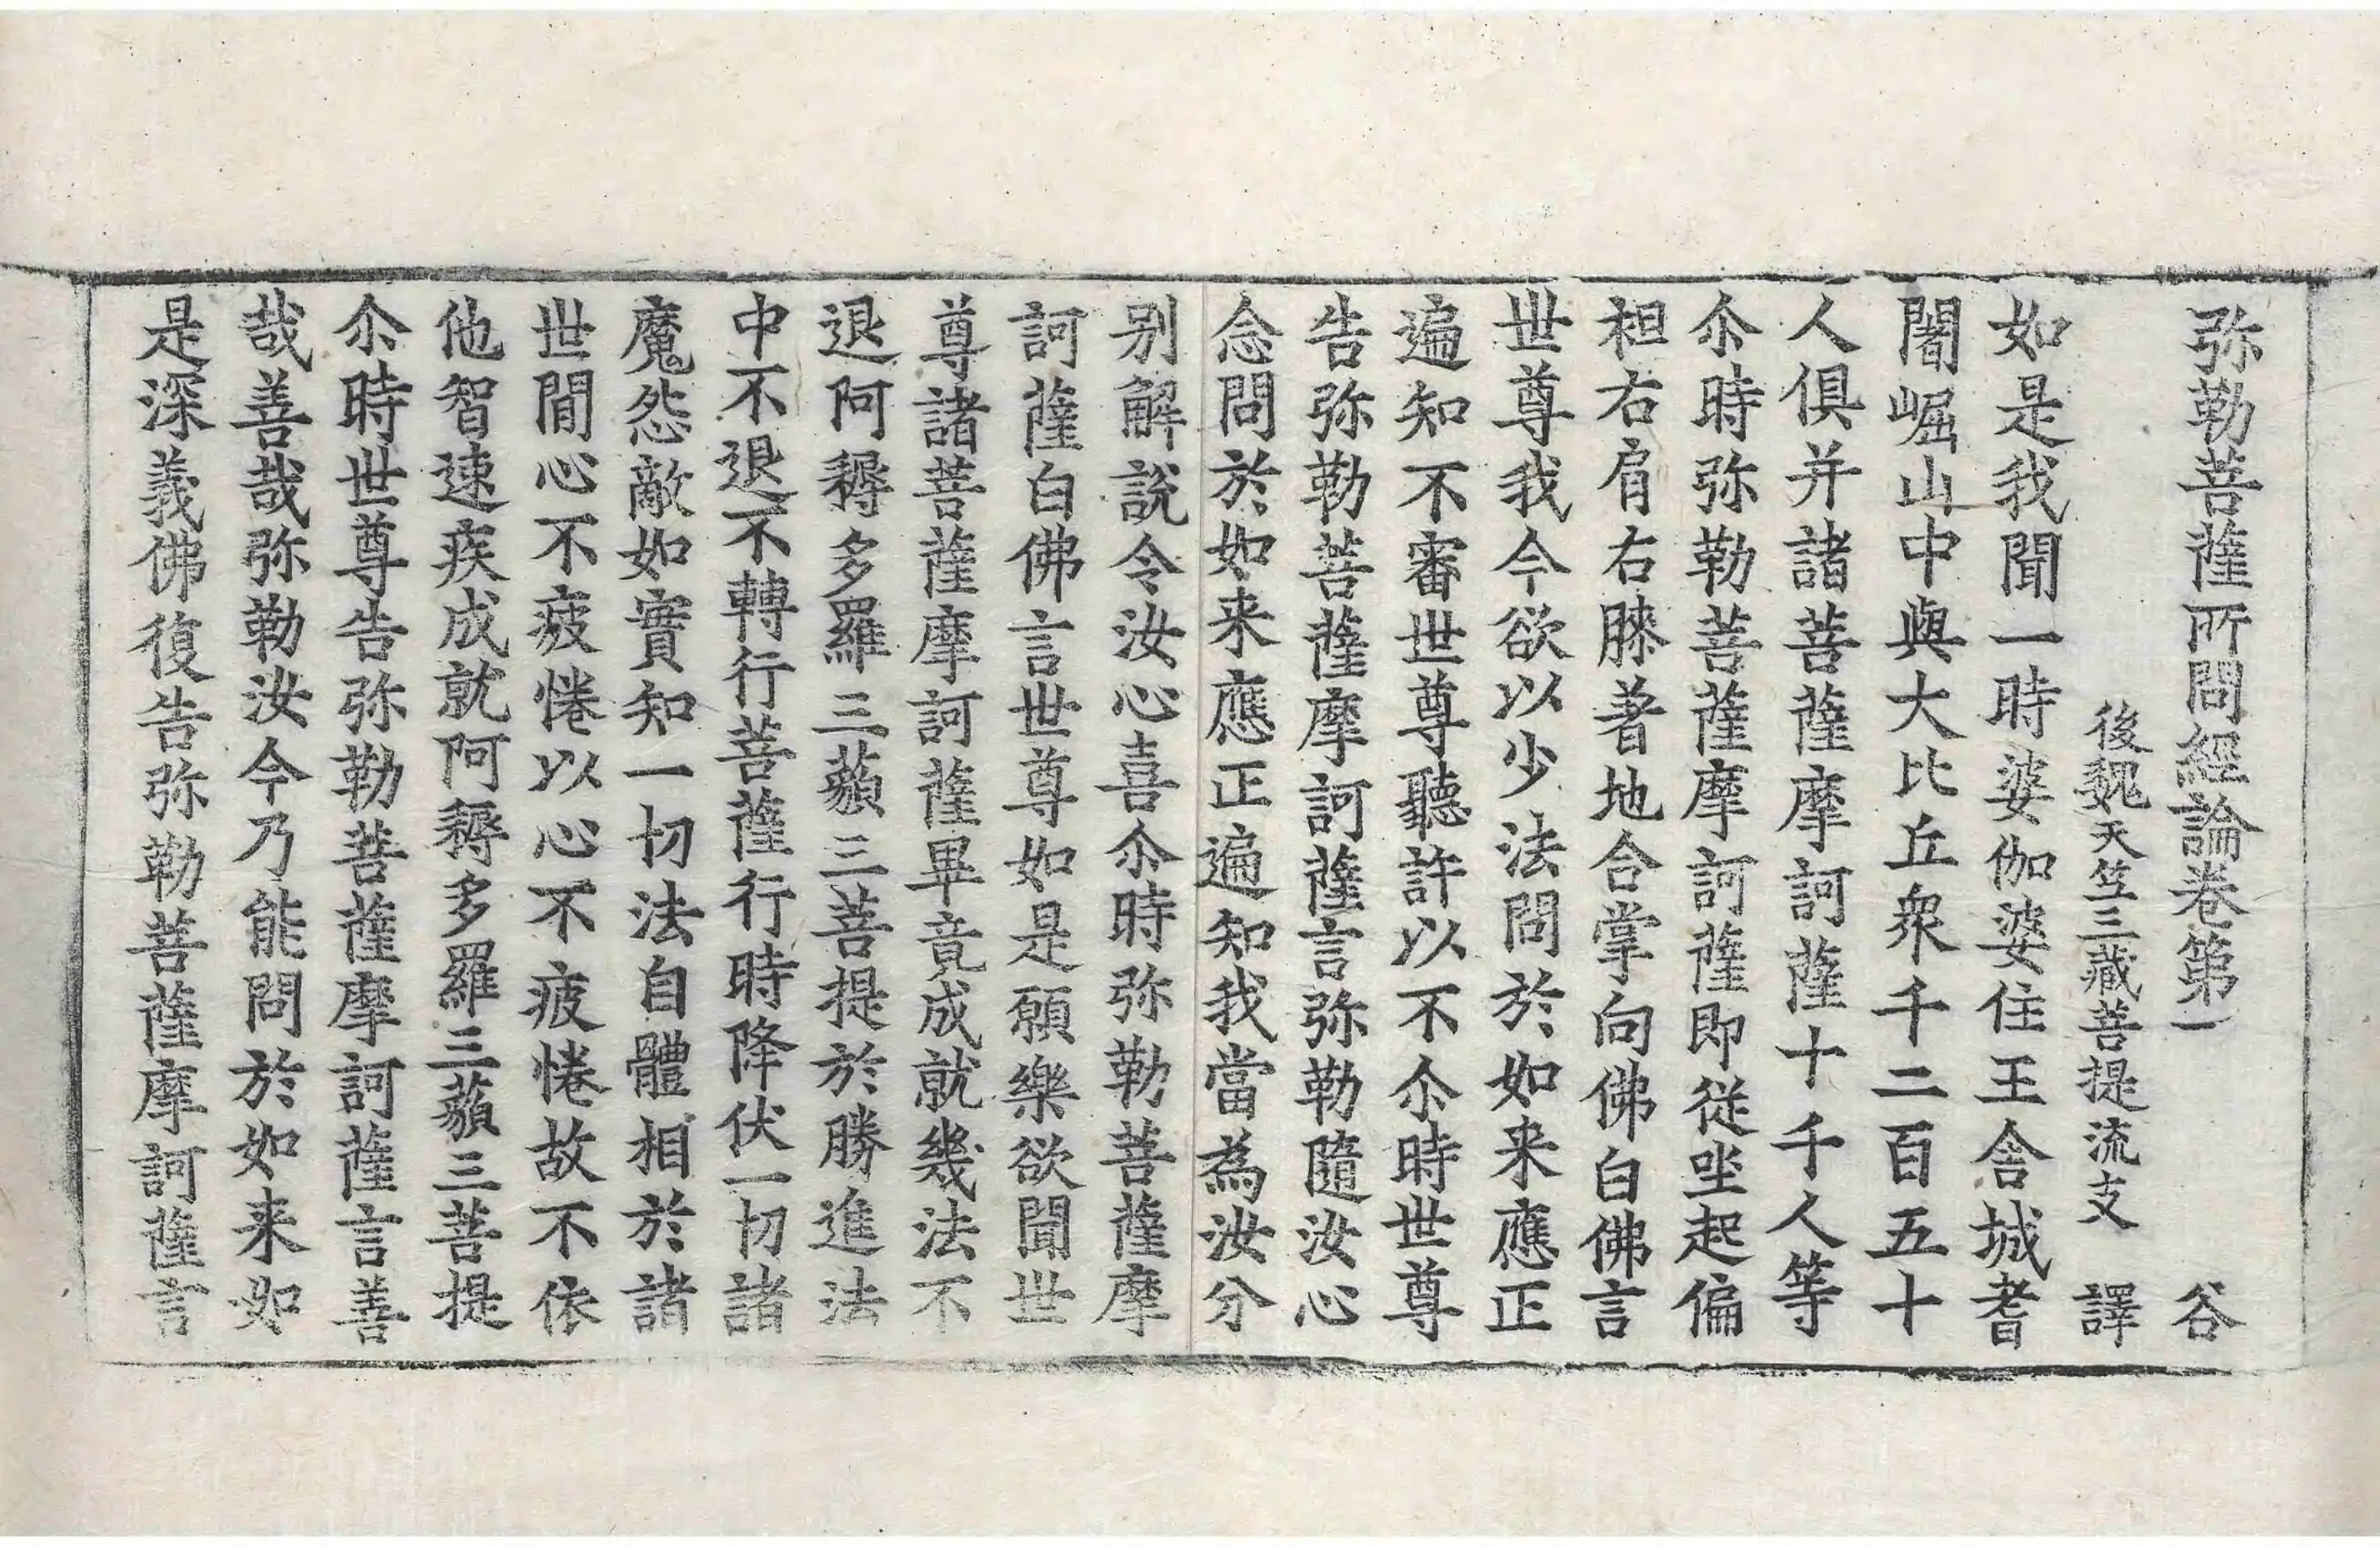 弥勒菩薩所問經論卷第一　谷
後魏天笁三藏菩提流支　譯
如是我聞一時婆伽婆住王舍城耆
闍崛山中與大比丘衆千二百五十
人俱并諸菩薩摩訶薩十千人等
尒時弥勒菩薩摩訶薩即從坐起偏
袒右肩右膝著地合掌向佛白佛言
世尊我今欲以少法問於如来應正
遍知不審世尊聽許以不尒時世尊
告弥勒菩薩摩訶薩言弥勒隨汝心
念問於如来應正遍知我當為汝分
别解說令汝心喜尒時弥勒菩薩摩
訶薩白佛言世尊如是願樂欲聞世
尊諸菩薩摩訶薩畢竟成就幾法不
退阿耨多羅三藐三菩提於勝進法
中不退不轉行菩薩行時降伏一切諸
魔怨敵如實知一切法自體相於諸
世間心不疲惓以心不疲惓故不依
他智速疾成就阿耨多羅三藐三菩提
尒時世尊告弥勒菩薩摩訶薩言善
哉善哉弥勒汝今乃能問於如来如
是深義佛復告弥勒菩薩摩訶薩言